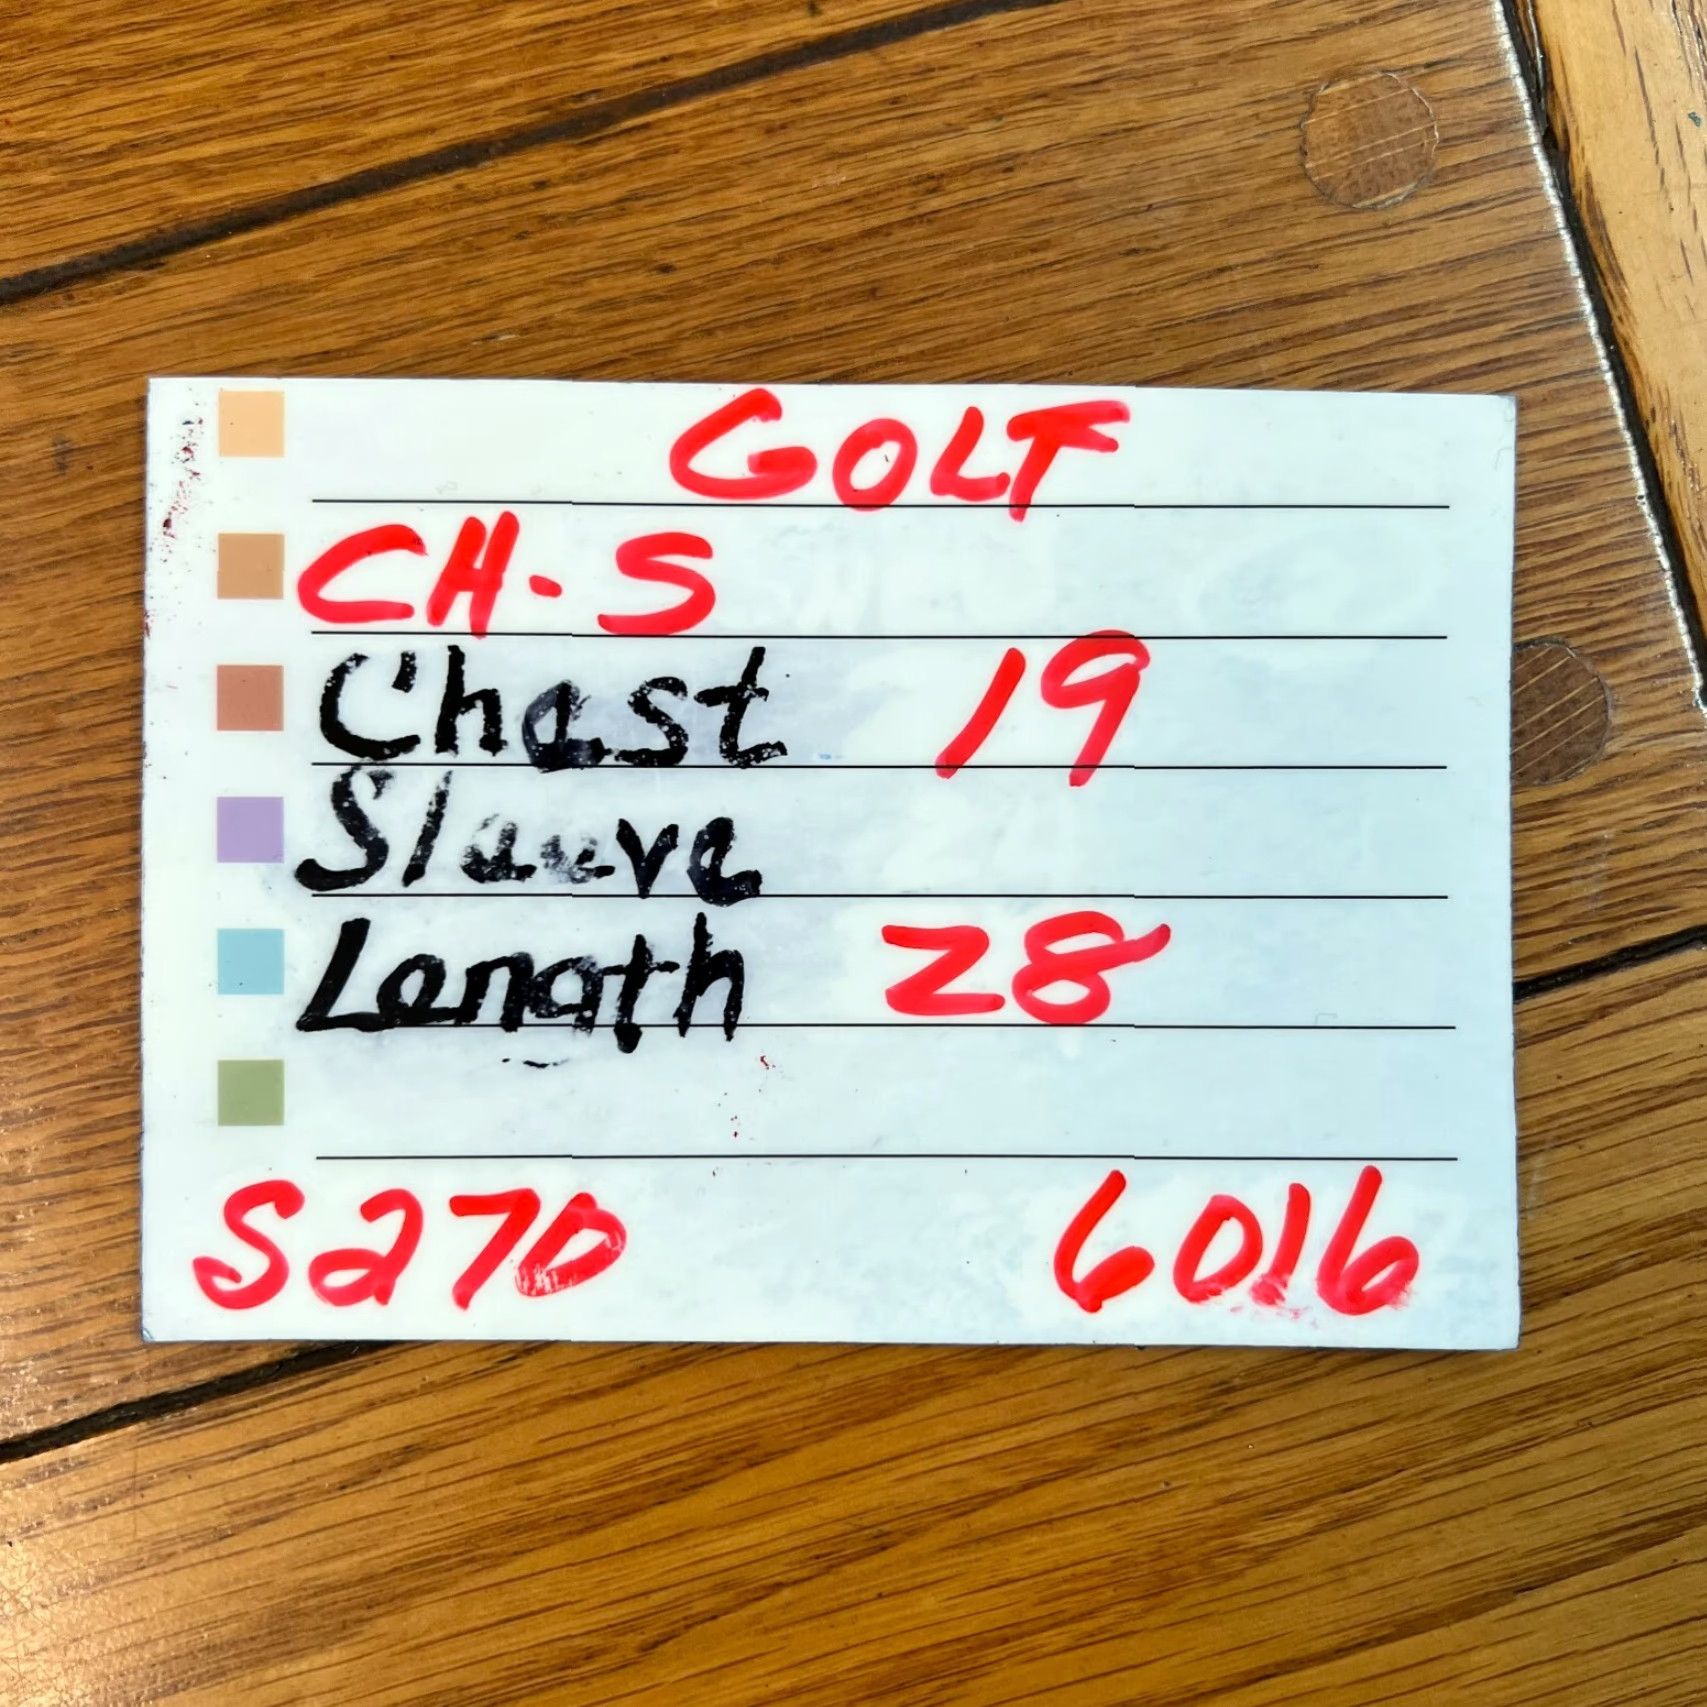 GOLF
CH-S
Chest 19
Sleeve
Length 28
S270 6016